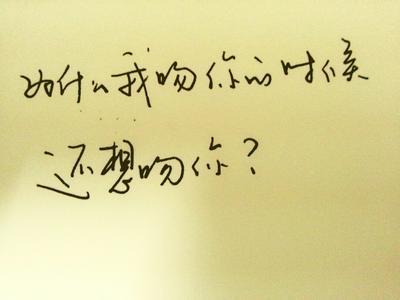 为什么我吻你的时候
还想吻你?